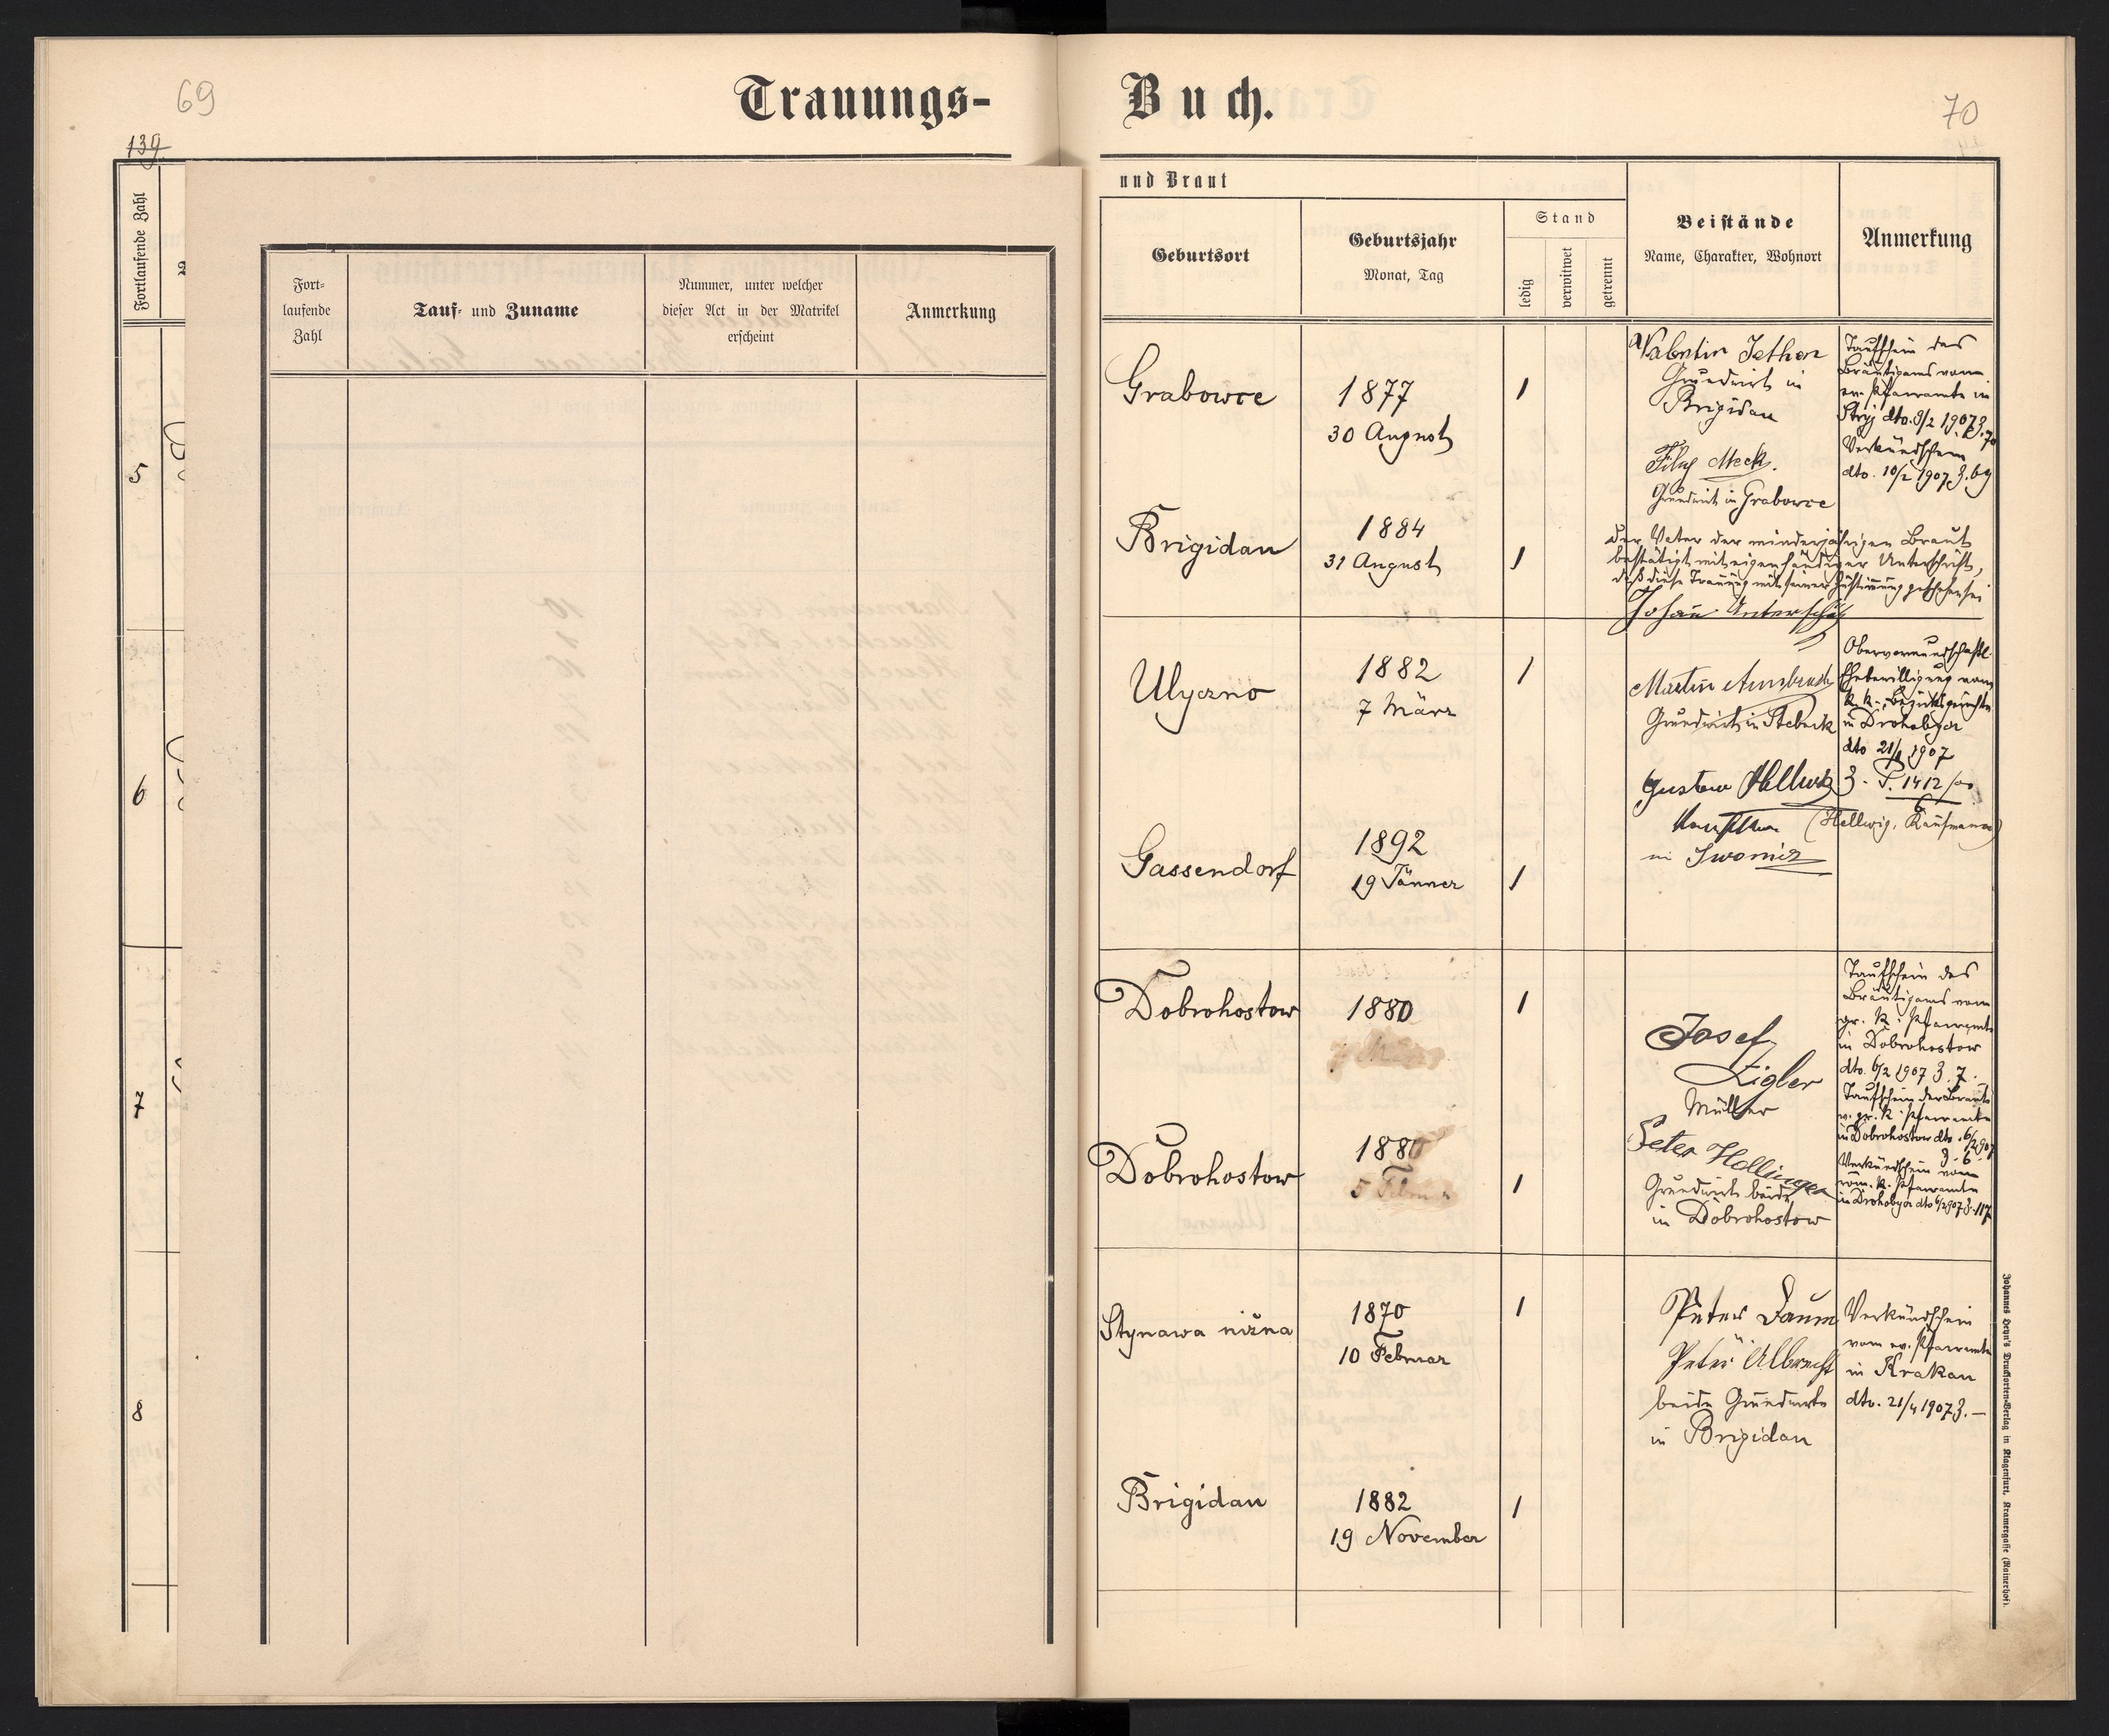 69
Trauungs-
Buch.
70
139
Fortlaufende Zahl
5
6
7
8
Fort-
laufende
Zahl
Tauf- und Zuname
Nummer, unter welcher
dieser Act in der Matrikel
erscheint
Anmerkung
und Braut
Geburtsort
Geburtsjahr
Monat, Tag
Stand
ledig
verwitwet
getrennt
Beistände
Name, Charakter, Wohnort
Anmerkung
Grabowce
1877
30 August
Valentin Jethon
Grundwirt in
Brigidau
Filip Meck.
Grundwirt in Grabowce
Taufschein des
Bräutigams vom
ev. Pfarramte in
Stryj dto. 9/2 1907 Z. 70
Verkündschein
dto. 10/2 1907 Z. 69
Brigidau
1884
31 August
Der Vater der minderjährigen Braut
bestätigt mit eigenhändiger Unterschrift,
daß diese Trauung mit seiner Zustimmung geschehen sei
Johann Unterschütz
Ulyczno
1882
7 März
Martin
Grundwirt in Stebnik
Gustaw Hellwig
Kaufmann
in Iwonicz
Obervormundschaftl.
Ehebewilligung vom
k. k. Bezirksgerichte
in Drohobycz
dto 1907
Z. P. 1412/00
6
(Hellwig, Kaufmann)
Gassendorf
1892
19 Jänner
Dobrohostow
1880
7 März
Josef
Zigler
Müller
Peter Hollinger
Grundwirt beide
in Dobrohostow
Taufschein des
Bräutigams vom
gr. k. Pfarramte
in Dobrohostow
dto. 6/2 1907 Z. 7.
Taufschein der Braut
v. gr. k. Pfarramte
in Dobrohostow dto. 6/2 907
Z. 6.
Verkündschein vom
röm. k. Pfarramte
in Drohobycz dto 6/2 907 Z. 117
Dobrohostow
1880
5
Stynawa niżna
1870
10 Februar
Peter Daum
Peter Albrecht
beide Grundwirte
in Brigidau
Verkündschein
vom ev. Pfarramte
in Krakau
dto. 21/4 1907 Z. —
Brigidau
1882
19 November
Johannes Heyn's Drucksorten-Verlag in Klagenfurt, Kramergasse (Rainerhof).